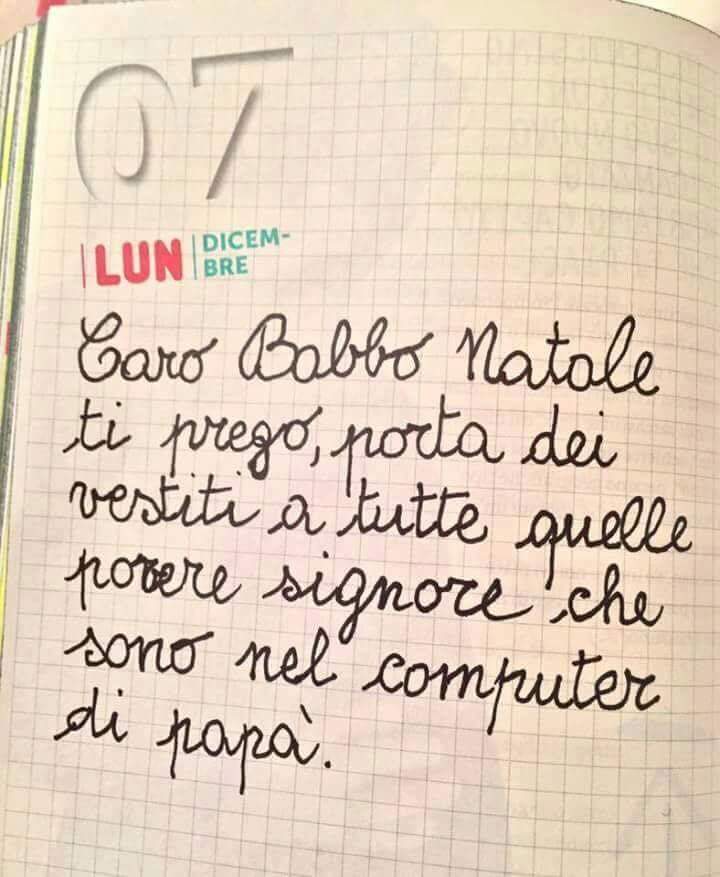 07
LUN
DICEM-
BRE
Caro Babbo Natale
ti prego, porta dei
vestiti a tutte quelle
povere signore che
sono nel computer
di papà.